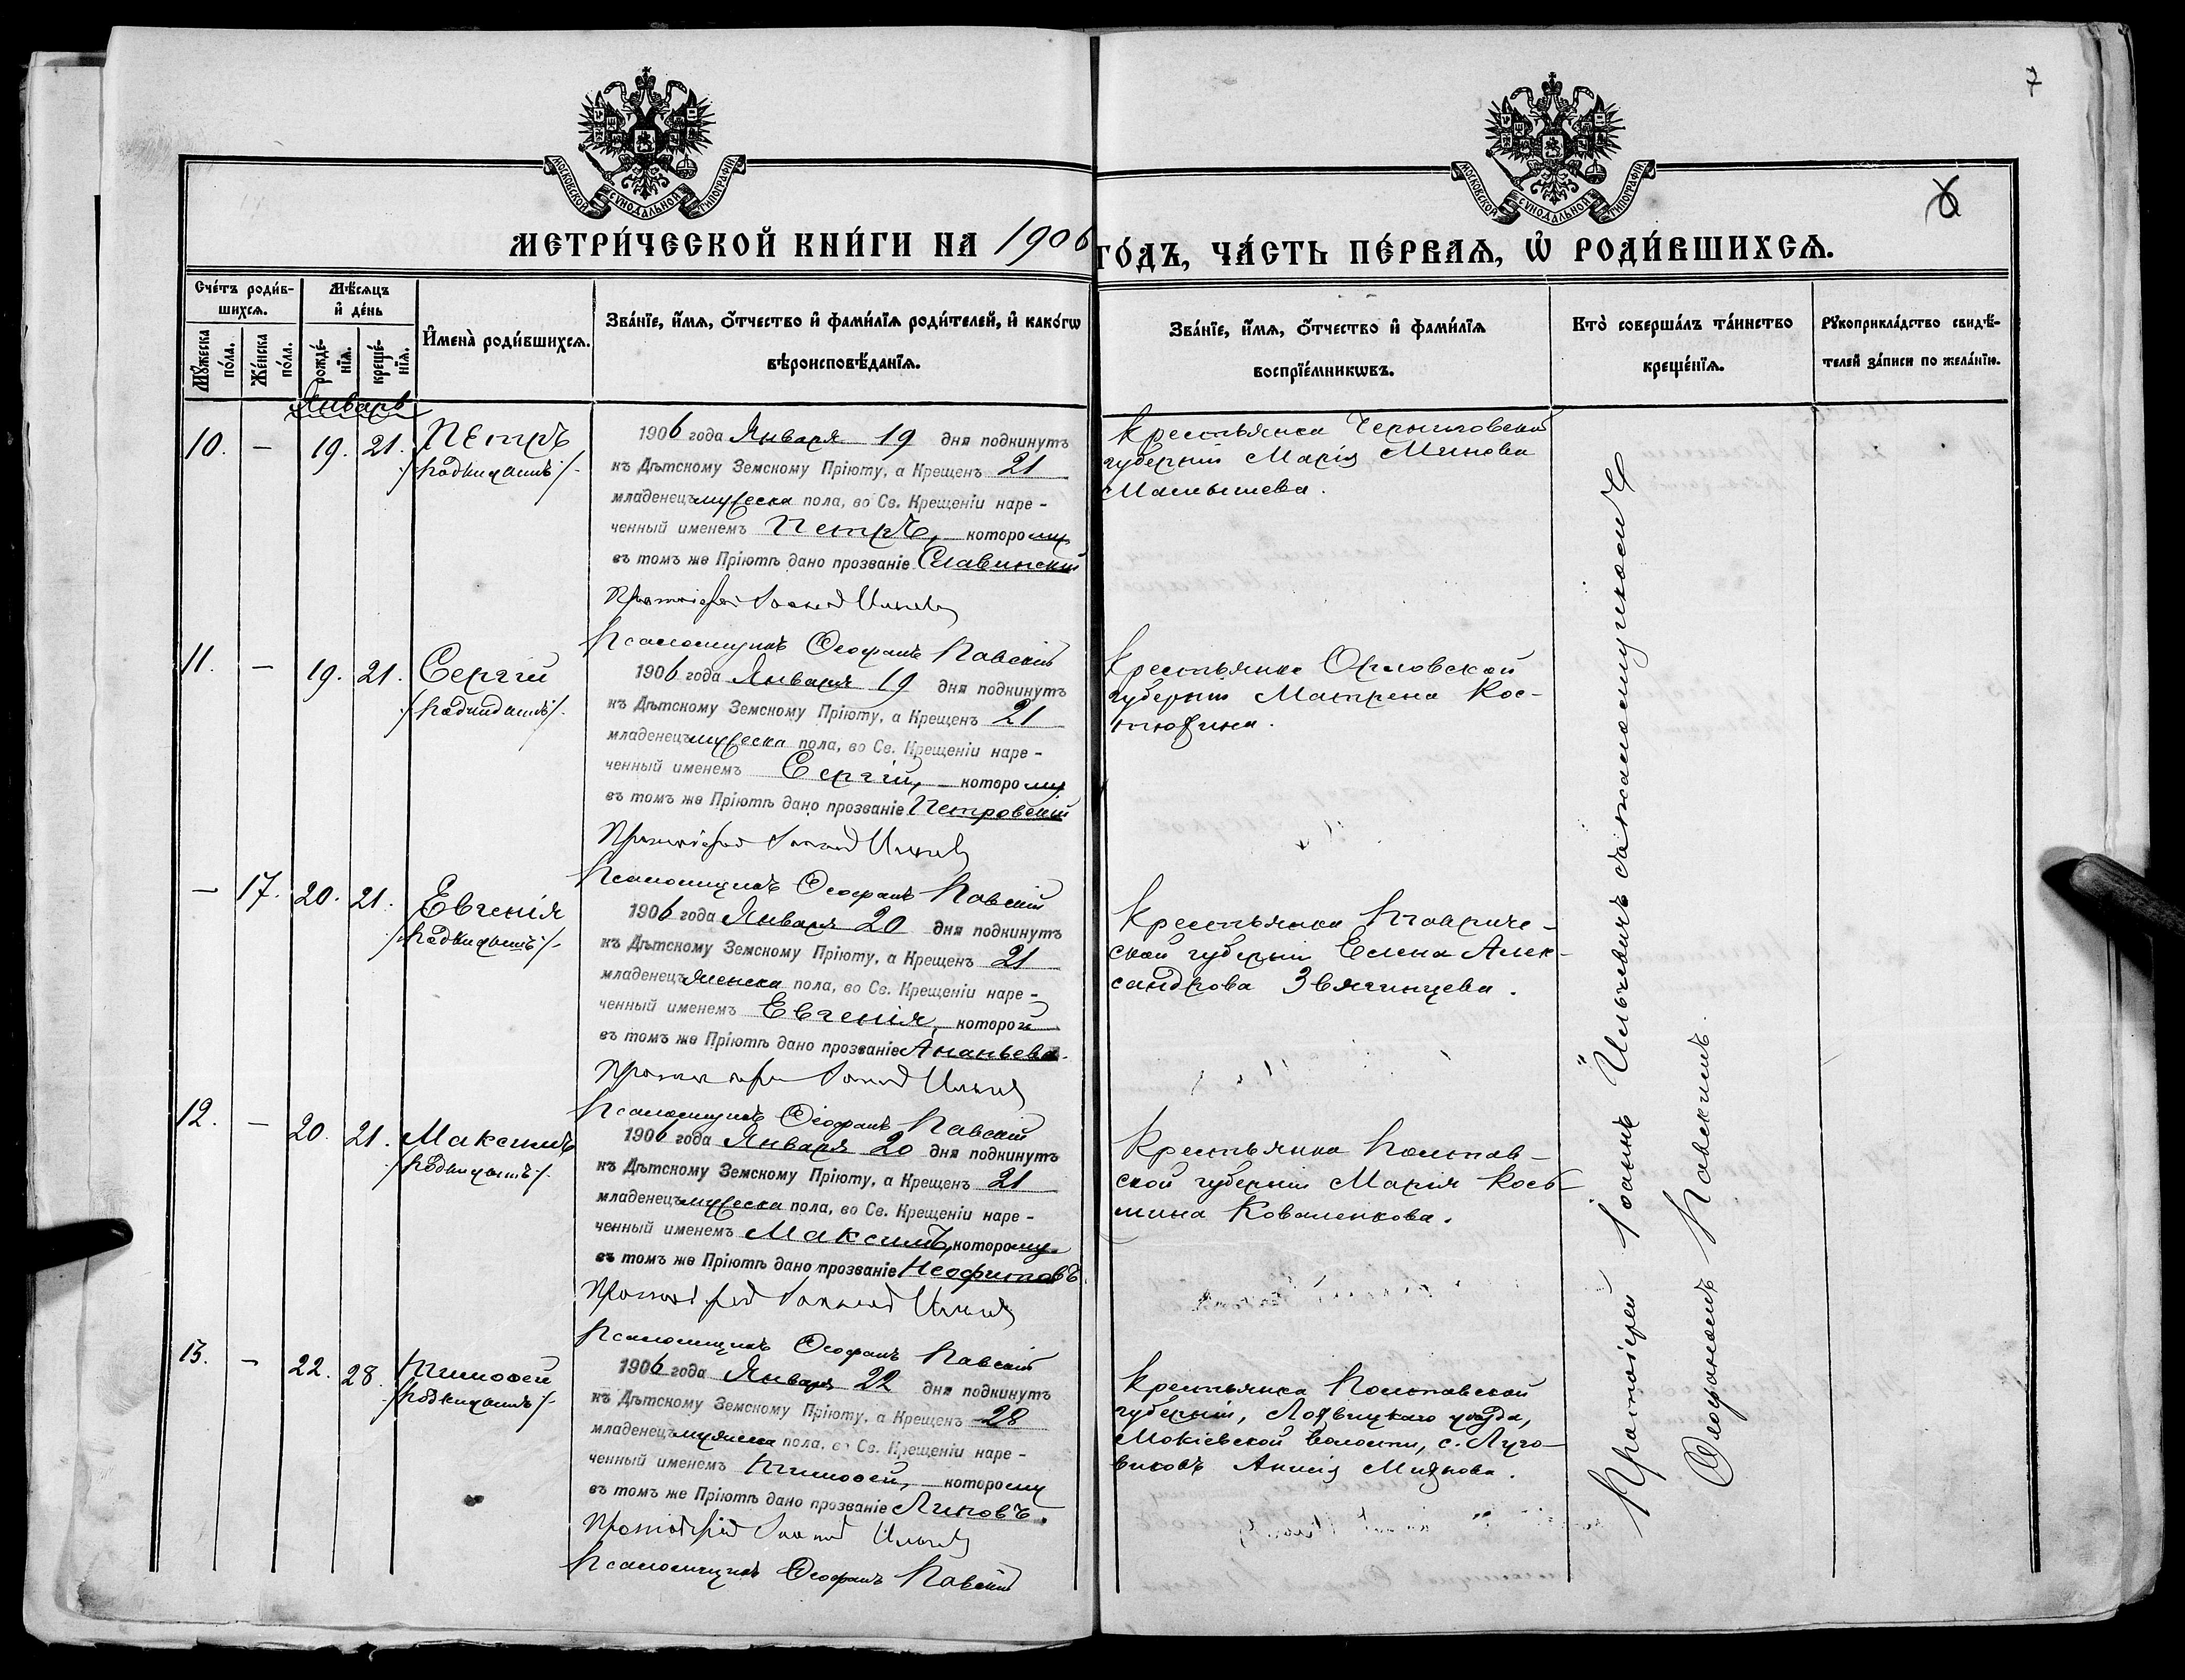 7
6
МОСКОВСКОЙ СѴНОДАЛЬНОЙ ТИПОГРАФІИ
МОСКОВСКОЙ СѴНОДАЛЬНОЙ ТИПОГРАФІИ
МЕТРИ́ЧЕСКОЙ КНИ́ГИ НА 1906 ГО́ДЪ, ЧА́СТЬ ПЕ́РВАѦ, Ѽ РОДИ́ВШИХСѦ.
Сче́тъ роди́в-
шихсѧ.
Мꙋ́жеска
по́ла.
Же́нска
по́ла.
Мѣ́сѧцъ
и҆ де́нь
рожде́-
нїѧ.
креще́-
нїѧ.
И҆мена̀ роди́вшихсѧ.
Зва́нїе, и҆́мѧ, ѻ҆́тчество и҆ фами́лїѧ роди́телей, и҆ како́гѡ
вѣроисповѣ́данїѧ.
Зва́нїе, и҆́мѧ, ѻ҆́тчество и҆ фами́лїѧ
воспрїе́мникѡвъ.
Кто̀ соверша́лъ та́инство
креще́нїѧ.
Рꙋкоприкла́дство свидѣ́-
телей за́писи по жела́нїю.
Январь
10. — 19. 21. Петръ
/подкидышъ/.
1906 года Января 19 дня подкинутъ
къ Дѣтскому Земскому Пріюту, а Крещенъ 21
младенецъ мужеска пола, во Св. Крещеніи наре-
ченный именемъ Петръ, которому
въ томъ же Пріютѣ дано прозваніе Славинскій
Протоіерей Іоаннъ
Псаломщикъ Ѳеофанъ Павскій
Крестьянка Черниговской
губерніи Марія Минова
Малышева.
11. — 19. 21. Сергій
/подкидышъ/.
1906 года Января 19 дня подкинутъ
къ Дѣтскому Земскому Пріюту, а Крещенъ 21
младенецъ мужеска пола, во Св. Крещеніи наре-
ченный именемъ Сергій, которому
въ томъ же Пріютѣ дано прозваніе Петровскій
Протоіерей Іоаннъ
Псаломщикъ Ѳеофанъ Павскій
Крестьянка Орловской
губерніи Матрена Кос-
тюхина.
— 17. 20. 21. Евгенія
/подкидышъ/.
1906 года Января 20 дня подкинутъ
къ Дѣтскому Земскому Пріюту, а Крещенъ 21
младенецъ женска пола, во Св. Крещеніи наре-
ченный именемъ Евгенія, которой
въ томъ же Пріютѣ дано прозваніе Ананьева.
Протоіерей Іоаннъ
Псаломщикъ Ѳеофанъ Павскій
Крестьянка Тавриче-
ской губерніи Елена Алек-
сандрова Звягинцева.
12. — 20. 21. Максимъ
/подкидышъ/.
1906 года Января 20 дня подкинутъ
къ Дѣтскому Земскому Пріюту, а Крещенъ 21
младенецъ мужеска пола, во Св. Крещеніи наре-
ченный именемъ Максимъ, которому
въ томъ же Пріютѣ дано прозваніе Неофитовъ.
Протоіерей Іоаннъ
Псаломщикъ Ѳеофанъ Павскій
Крестьянка Полтав-
ской губерніи Марія Кось-
мина Коваленкова.
13. — 22. 28. Тимоѳей
/подкидышъ/.
1906 года Января 22 дня подкинутъ
къ Дѣтскому Земскому Пріюту, а Крещенъ 28
младенецъ мужеска пола, во Св. Крещеніи наре-
ченный именемъ Тимоѳей, которому
въ томъ же Пріютѣ дано прозваніе Линовъ.
Протоіерей Іоаннъ
Псаломщикъ Ѳеофанъ Павскій
Крестьянка Полтавской
губерніи, Лохвицкаго уѣзда,
Мокіевской волости, с. Луго-
виковъ Анисія
Протоіерей Іоаннъ съ псаломщикомъ
Ѳеофаномъ Павскимъ.